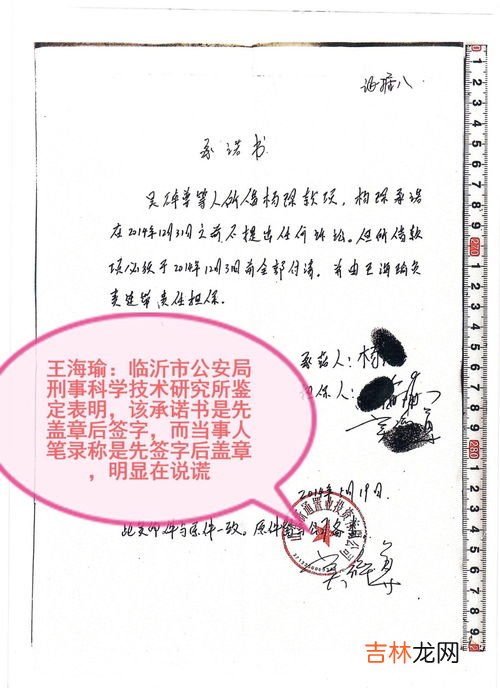 证据八
承诺书
吴碎尊等人所借杨琛款项，杨琛承诺
在2014年12月31日之前不提出任何诉讼。但所借款
项必须于2014年12月31日前全部付清，并由王海瑜负
责连带责任担保。
承诺人：杨
担保人：
王海瑜：临沂市公安局
刑事科学技术研究所鉴
定表明，该承诺书是先
盖章后签字，而当事人
笔录称是先签字后盖章
，明显在说谎
2014年 月19日
此复印件与原件一致。原件
吉林龙网